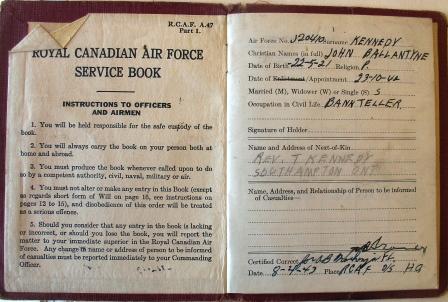 R.C.A.F. A.47
Part 1.
ROYAL CANADIAN AIR FORCE
SERVICE BOOK
INSTRUCTIONS TO OFFICERS
AND AIRMEN
1. You will be held responsible for the safe custody of the
book.
2. You will always carry the book on your person both at
home and abroad.
3. You must produce the book whenever called upon to do
so by a competent authority, civil, naval, military or air.
4. You must not alter or make any entry in this Book (except
as regards short form of Will on page 16, see instructions on
pages 12 to 15), and disobedience of this order will be treated
as a serious offence.
5. Should you consider that any entry in the book is lacking
or incorrect, or should you lose the book, you will report the
matter to your immediate superior in the Royal Canadian Air
Force. Any change in name or address of person to be informed
of casualties must be reported immediately to your Commanding
Officer.
Air Force No. J20410 Surname KENNEDY
Christian Names (in full) JOHN BALLANTYNE
Date of Birth 22-5-21 Religion P.
Date of Enlistment/Appointment 23-10-42
Married (M), Widower (W) or Single (S) S
Occupation in Civil Life BANK TELLER
Signature of Holder
Name and Address of Next-of-Kin
REV. T KENNEDY
SOUTHAMPTON ONT
Name, Address, and Relationship of Person to be informed
of Casualties
Certified Correct
Date 8-4-43 Place RCAF O/S HQ